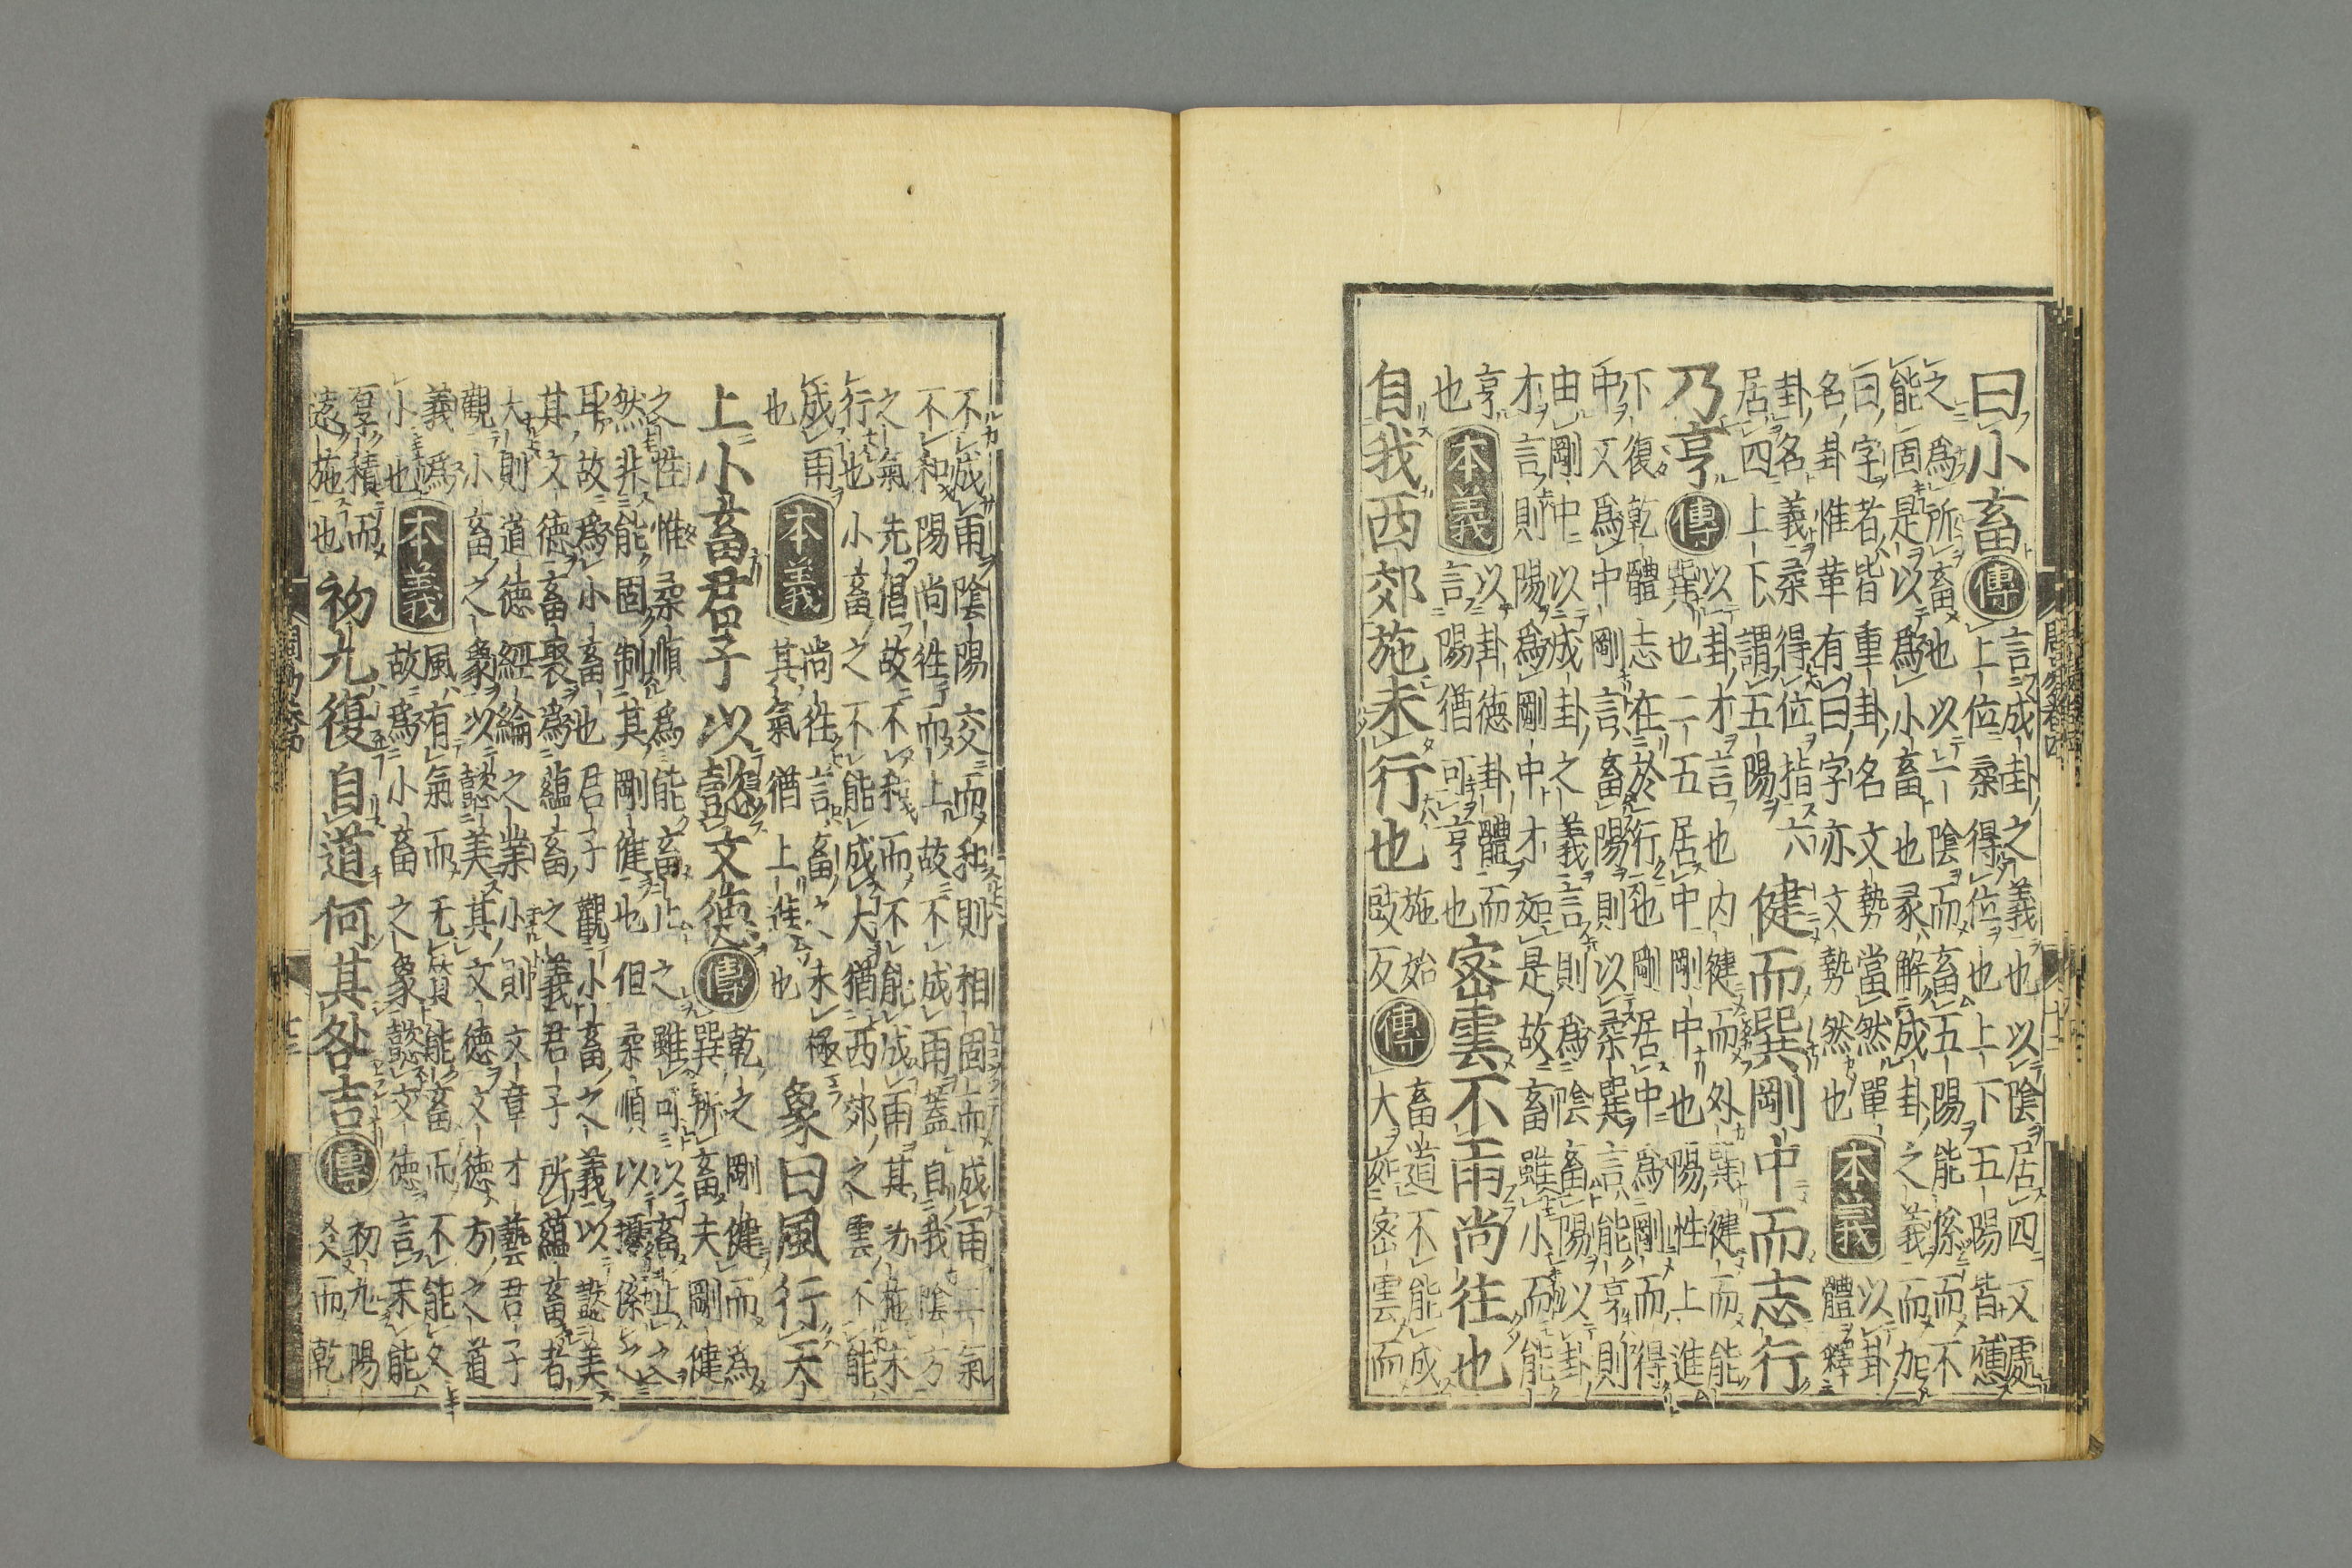 曰小畜傳言成卦之義也以陰居四又處
上位柔得位也上下五陽皆應
之爲所畜也以一陰而畜五陽能係而不
能固是以爲小畜也彖解成卦之義而加
曰字者皆重卦名文勢當然單
名卦惟革有曰字亦文勢然也本義以卦
體釋
卦名義柔得位指六
居四上下謂五陽健而巽剛中而志行
乃亨傳以卦才言也内健而外巽健而能
巽也二五居中剛中也陽性上進
下復乾體志在於行也剛居中爲剛而得
中又爲中剛言畜陽則以柔巽言能亨則
由剛中以成卦之義言則爲陰畜陽以卦
才言則陽爲剛中才如是故畜雖小而能
亨
也本義以卦德卦體而
言陽猶可亨也密雲不雨尚往也
自我西郊施未行也施始
豉反傳畜道不能成
大如密雲而
不成雨陰陽交而和則相固而成雨二氣
不和陽尚往而上故不成雨蓋自我陰方
之氣先倡故不和而不能成雨其功施未
行也小畜之不能成大猶西郊之雲不能
成雨
也本義尚往言畜之未極
其氣猶上進也象曰風行天
上小畜君子以懿文德傳乾之剛健而爲
巽所畜夫剛健
之性惟柔順爲能畜止之雖可以畜止之
然非能固制其剛健也但柔順以擾係之
耳故爲小畜也君子觀小畜之義以懿美
其文德畜聚爲蘊畜之義君子所蘊畜者
大則道德經綸之業小則文章才藝君子
觀小畜之象以懿美其文德文德方之道
義爲
小也本義風有氣而无質能畜而不能久
故爲小畜之象懿文德言未能
厚積而
遠施也初九復自道何其咎吉傳初九陽
爻而乾